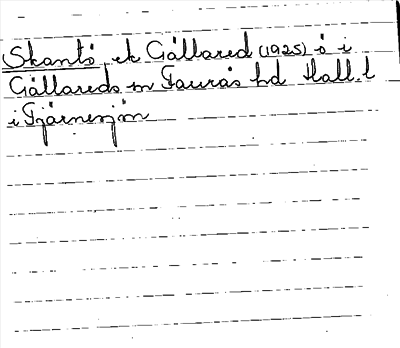 Skantö ek Gällared (1925) ö i
Gällareds sn Faurås hd Hall.l
i Fjärnesjön